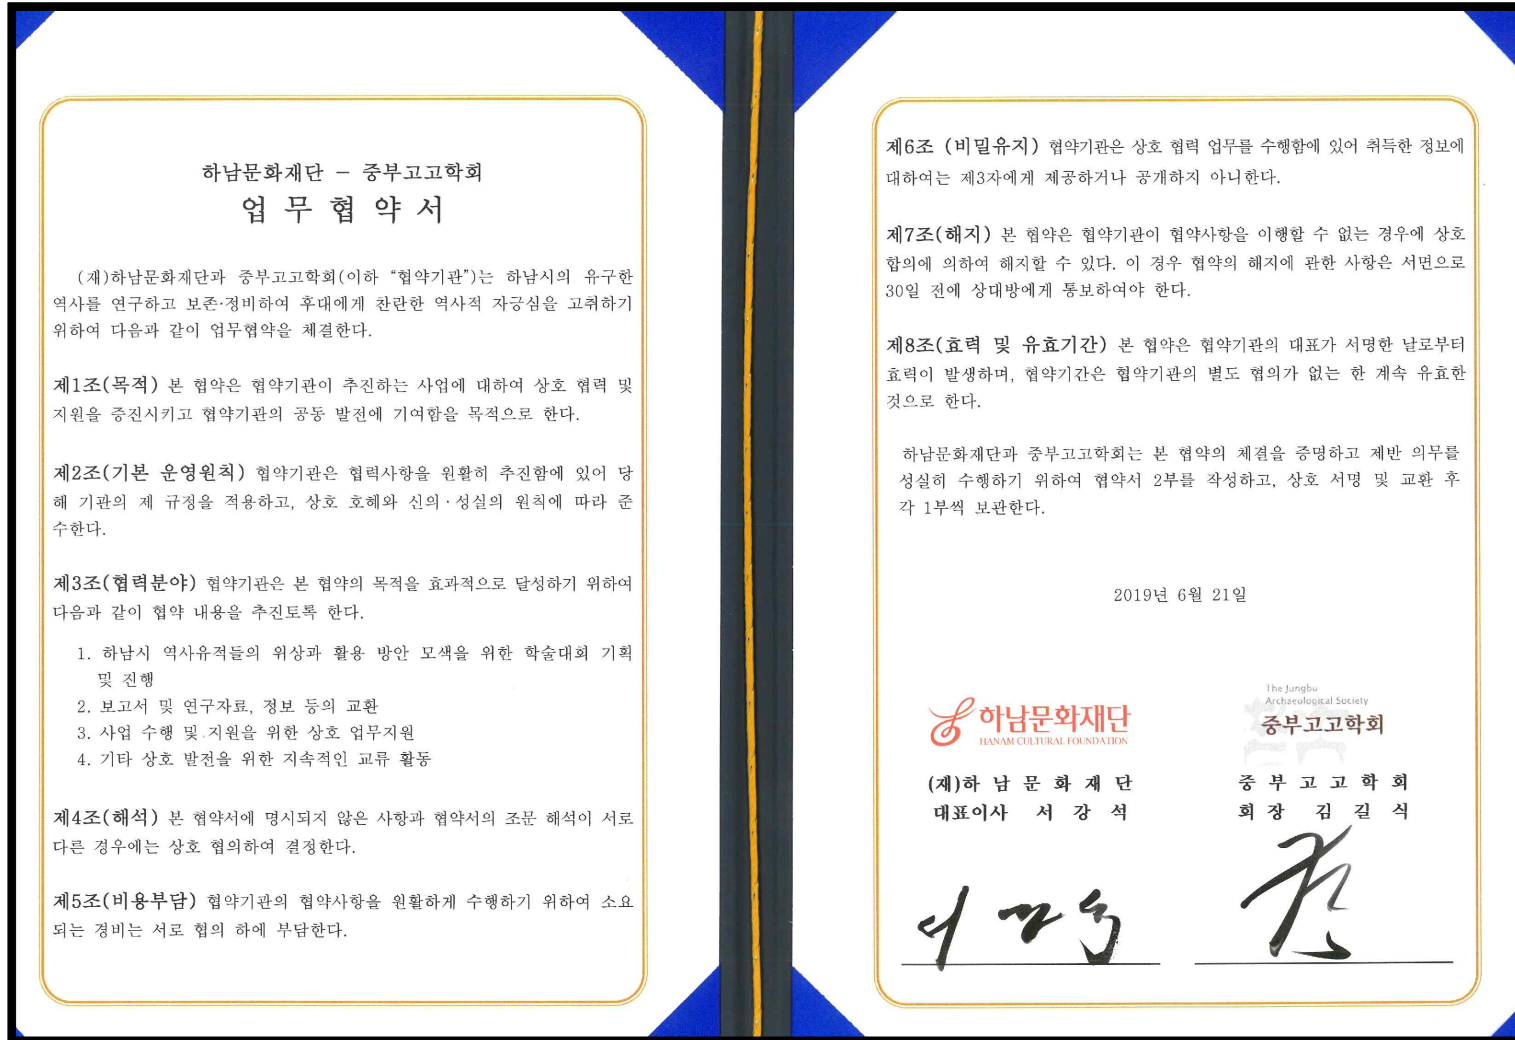 하남문화재단 - 중부고고학회
업 무 협 약 서
(재)하남문화재단과 중부고고학회(이하 “협약기관”)는 하남시의 유구한
역사를 연구하고 보존·정비하여 후대에게 찬란한 역사적 자긍심을 고취하기
위하여 다음과 같이 업무협약을 체결한다.
제1조(목적) 본 협약은 협약기관이 추진하는 사업에 대하여 상호 협력 및
지원을 증진시키고 협약기관의 공동 발전에 기여함을 목적으로 한다.
제2조(기본 운영원칙) 협약기관은 협력사항을 원활히 추진함에 있어 당
해 기관의 제 규정을 적용하고, 상호 호혜와 신의·성실의 원칙에 따라 준
수한다.
제3조(협력분야) 협약기관은 본 협약의 목적을 효과적으로 달성하기 위하여
다음과 같이 협약 내용을 추진토록 한다.
1. 하남시 역사유적들의 위상과 활용 방안 모색을 위한 학술대회 기획
및 진행
2. 보고서 및 연구자료, 정보 등의 교환
3. 사업 수행 및 지원을 위한 상호 업무지원
4. 기타 상호 발전을 위한 지속적인 교류 활동
제4조(해석) 본 협약서에 명시되지 않은 사항과 협약서의 조문 해석이 서로
다른 경우에는 상호 협의하여 결정한다.
제5조(비용부담) 협약기관의 협약사항을 원활하게 수행하기 위하여 소요
되는 경비는 서로 협의 하에 부담한다.
제6조 (비밀유지) 협약기관은 상호 협력 업무를 수행함에 있어 취득한 정보에
대하여는 제3자에게 제공하거나 공개하지 아니한다.
제7조(해지) 본 협약은 협약기관이 협약사항을 이행할 수 없는 경우에 상호
합의에 의하여 해지할 수 있다. 이 경우 협약의 해지에 관한 사항은 서면으로
30일 전에 상대방에게 통보하여야 한다.
제8조(효력 및 유효기간) 본 협약은 협약기관의 대표가 서명한 날로부터
효력이 발생하며, 협약기간은 협약기관의 별도 협의가 없는 한 계속 유효한
것으로 한다.
하남문화재단과 중부고고학회는 본 협약의 체결을 증명하고 제반 의무를
성실히 수행하기 위하여 협약서 2부를 작성하고, 상호 서명 및 교환 후
각 1부씩 보관한다.
2019년 6월 21일
하남문화재단
HANAM CULTURAL FOUNDATION
(재)하 남 문 화 재 단
대표이사 서 강 석
The Jungbu
Archaeological Society
중부고고학회
중 부 고 고 학 회
회 장 김 길 식